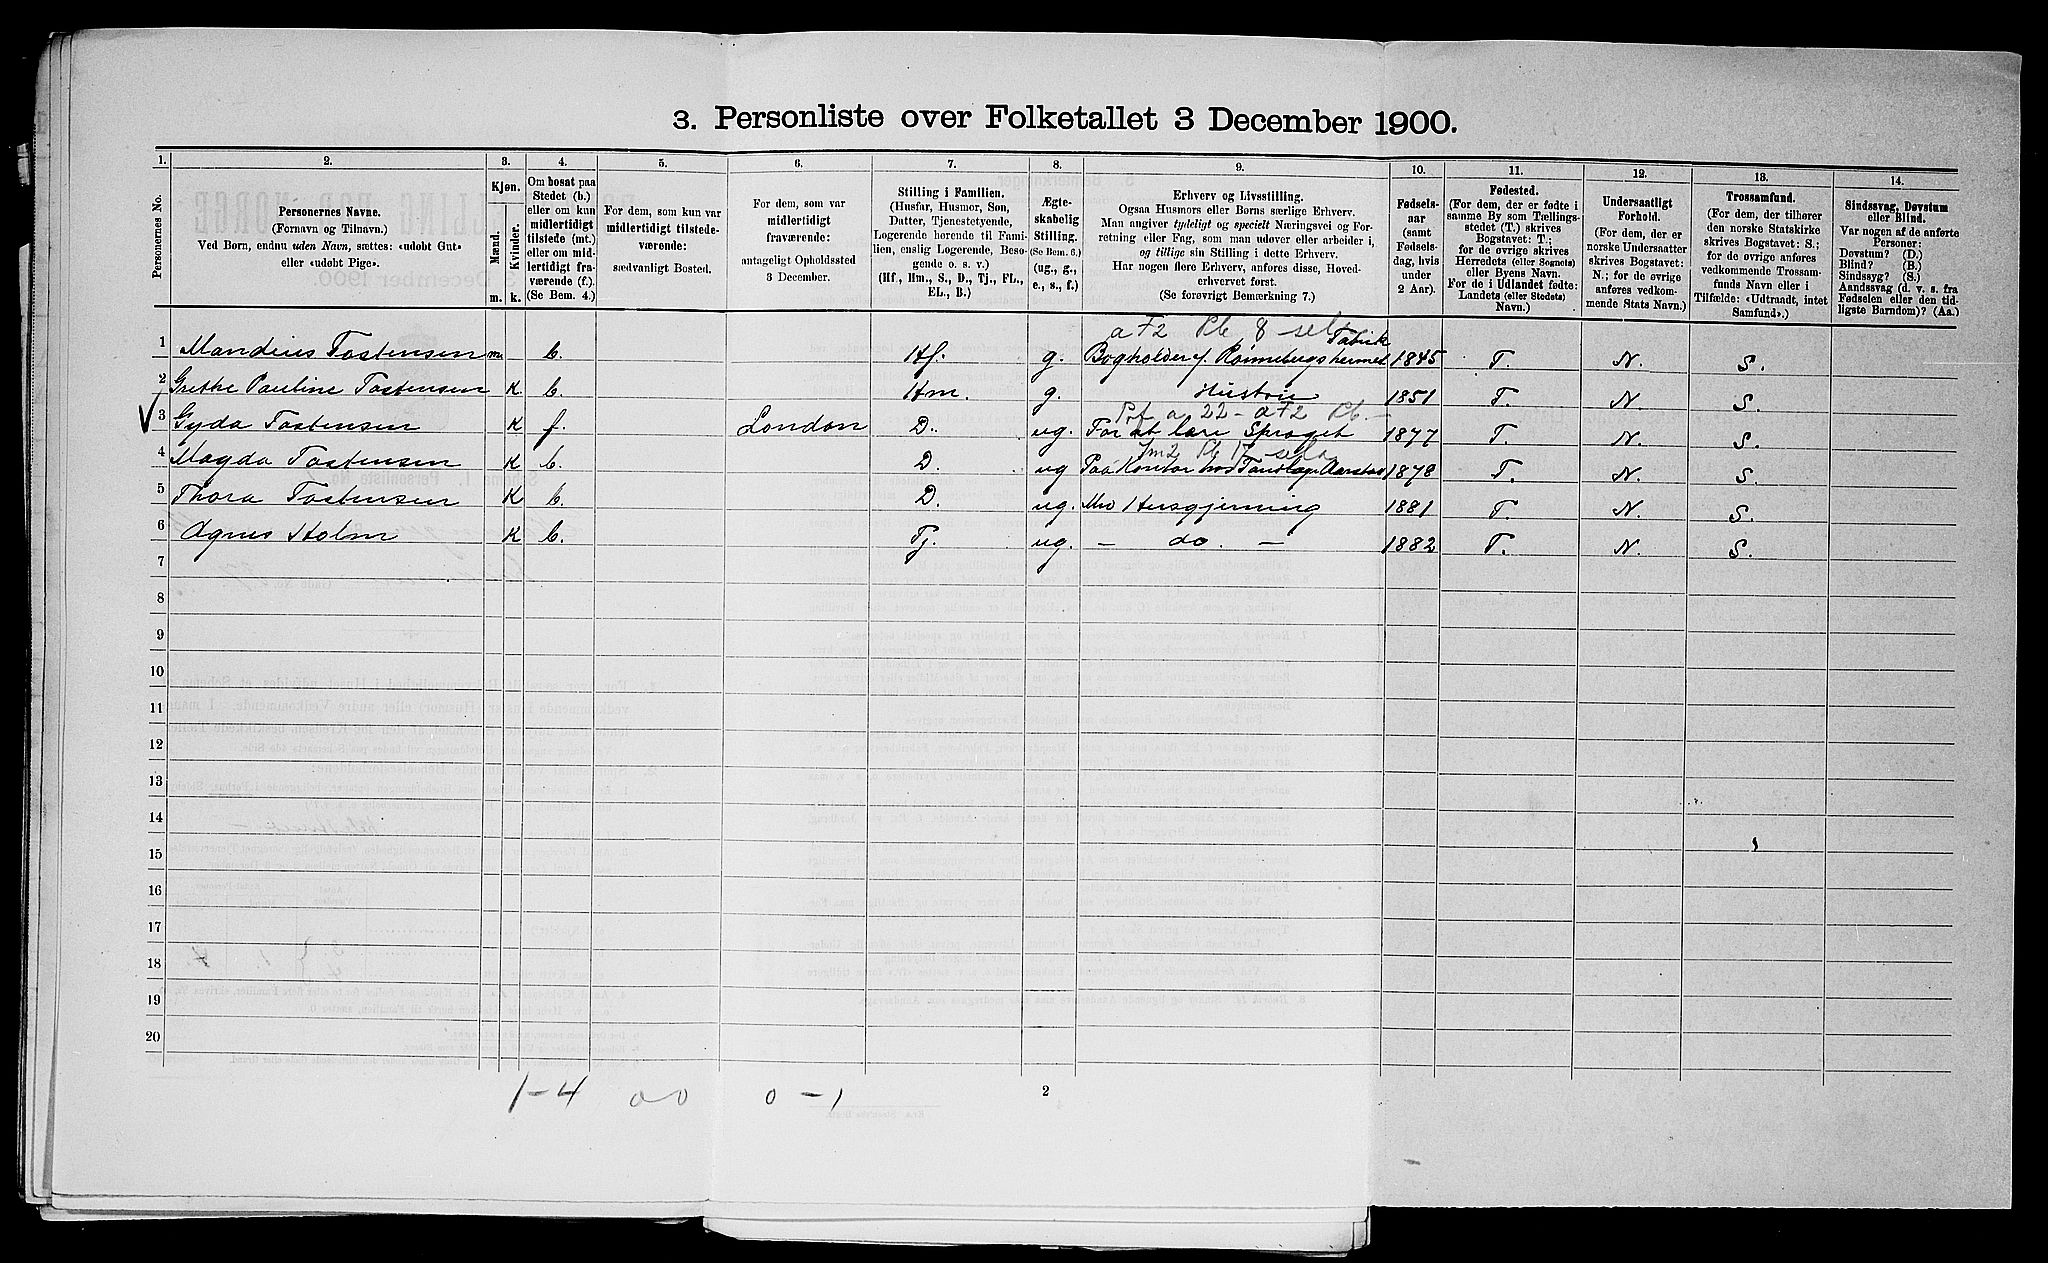 3. Personliste over Folketallet 3 December 1900.
1. 2. 3. 4. 5. 6. 7. 8. 9. 10. 11. 12. 13. 14.
Personernes No.
Personernes Navne.
(Fornavn og Tilnavn.)
Ved Børn, endnu uden Navn, sættes: «udøbt Gut»
eller «udøbt Pige».
Kjøn.
Mænd.
Kvinder.
m. k.
Om bosat paa
Stedet (b.)
eller om kun
midlertidigt
tilstede (mt.)
eller om mid-
lertidigt fra-
værende (f.).
(Se Bem. 4.)
For dem, som kun var
midlertidigt tilstede-
værende:
sædvanligt Bosted.
For dem, som var
midlertidigt
fraværende:
antageligt Opholdssted
3 December.
Stilling i Familien.
(Husfar, Husmor, Søn,
Datter, Tjenestetyende,
Logerende hørende til Fami-
lien, enslig Logerende, Besø-
gende o. s. v.)
(Hf., Hm., S., D., Tj., FL.,
EL., B.)
Ægte-
skabelig
Stilling.
(Se Bem. 6.)
(ug., g.,
e., s., f.)
Erhverv og Livsstilling.
Ogsaa Husmors eller Børns særlige Erhverv.
Man angiver tydeligt og specielt Næringsvei og For-
retning eller Fag, som man udøver eller arbeider i,
og tillige sin Stilling i dette Erhverv.
Har nogen flere Erhverv, anføres disse, Hoved-
erhvervet først.
(Se forøvrigt Bemærkning 7.)
Fødsels-
aar
(samt
Fødsels-
dag, hvis
under
2 Aar).
Fødested.
(For dem, der er fødte i
samme By som Tællings-
stedet (T.) skrives
Bogstavet: T.;
for de øvrige skrives
Herredets (eller Sognets)
eller Byens Navn.
For de i Udlandet fødte:
Landets (eller Stedets)
Navn.)
Undersaatligt
Forhold.
(For dem, der er
norske Undersaatter
skrives Bogstavet:
N.; for de øvrige
anføres vedkom-
mende Stats Navn.)
Trossamfund.
(For dem, der tilhører
den norske Statskirke
skrives Bogstavet: S.;
for de øvrige anføres
vedkommende Trossam-
funds Navn eller i
Tilfælde: «Udtraadt, intet
Samfund».)
Sindssvag, Døvstum
eller Blind.
Var nogen af de anførte
Personer:
Døvstum? (D.)
Blind? (B.)
Sindssyg? (S.)
Aandssvag (d. v. s. fra
Fødselen eller den tid-
ligste Barndom)? (Aa.)
a F2 Pb 8
Fabrik
1 Mandius Tostensen m. b. Hf. g. Bogholder v/ Rønnebergs hermet. 1845 T. N. S.
2 Grethe Pauline Tostensen K b. Hm. g. Hustru 1851 T. N. S.
a 22 - a F2 Pb. -
3 Gyda Tostensen K f. London D. ug. For at lære Sproget 1877 T. N. S.
Pb 17
4 Magda Tostensen K b. D. ug Paa Kontor hos Tandlæge Aarstad 1878 T. N. S.
5 Thora Tostensen K b. D. ug. Med Husgjerning 1881 T. N. S.
6 Agnes Holm K b. Tj. ug. - do. - 1882 T. N. S.
7
8
9
10
11
12
13
14
15
16
17
18
19
20
1-4 0 0 0-1
2